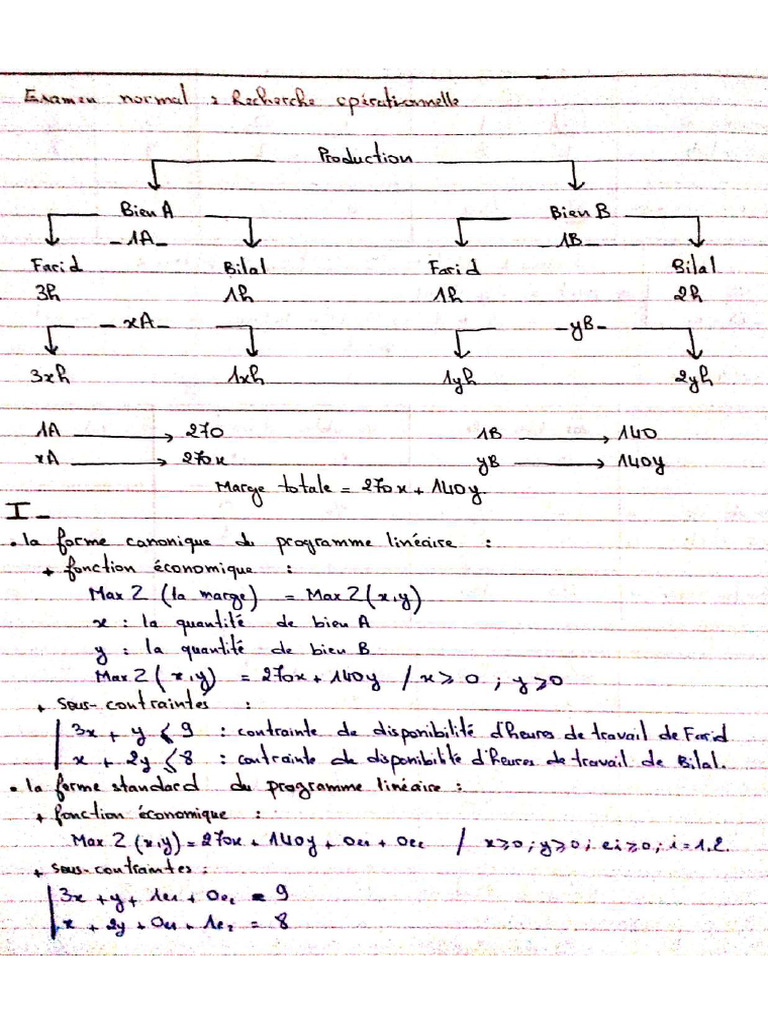 Examen normal : Recherche opérationnelle
Production
Bien A Bien B
-1A- -1B-
Farid Bilal Farid Bilal
3h 1h 1h 2h
-xA- -yB-
3xh 1xh 1yh 2yh
1A → 270 1B → 140
xA → 270x yB → 140y
Marge totale = 270x + 140y
I -
• la forme canonique du programme linéaire :
+ fonction économique :
Max Z (la marge) = Max Z (x,y)
x : la quantité de bien A
y : la quantité de bien B
Max Z (x,y) = 270x + 140y / x ≥ 0 ; y ≥ 0
+ sous-contraintes :
3x + y ≤ 9 : contrainte de disponibilité d'heures de travail de Farid
x + 2y ≤ 8 : contrainte de disponibilité d'heures de travail de Bilal.
• la forme standard du programme linéaire :
+ fonction économique :
Max Z (x,y) = 270x + 140y + 0e1 + 0e2 / x ≥ 0 ; y ≥ 0 ; ei ≥ 0 ; i = 1,2.
+ sous-contraintes :
3x + y + 1e1 + 0e2 = 9
x + 2y + 0e1 + 1e2 = 8